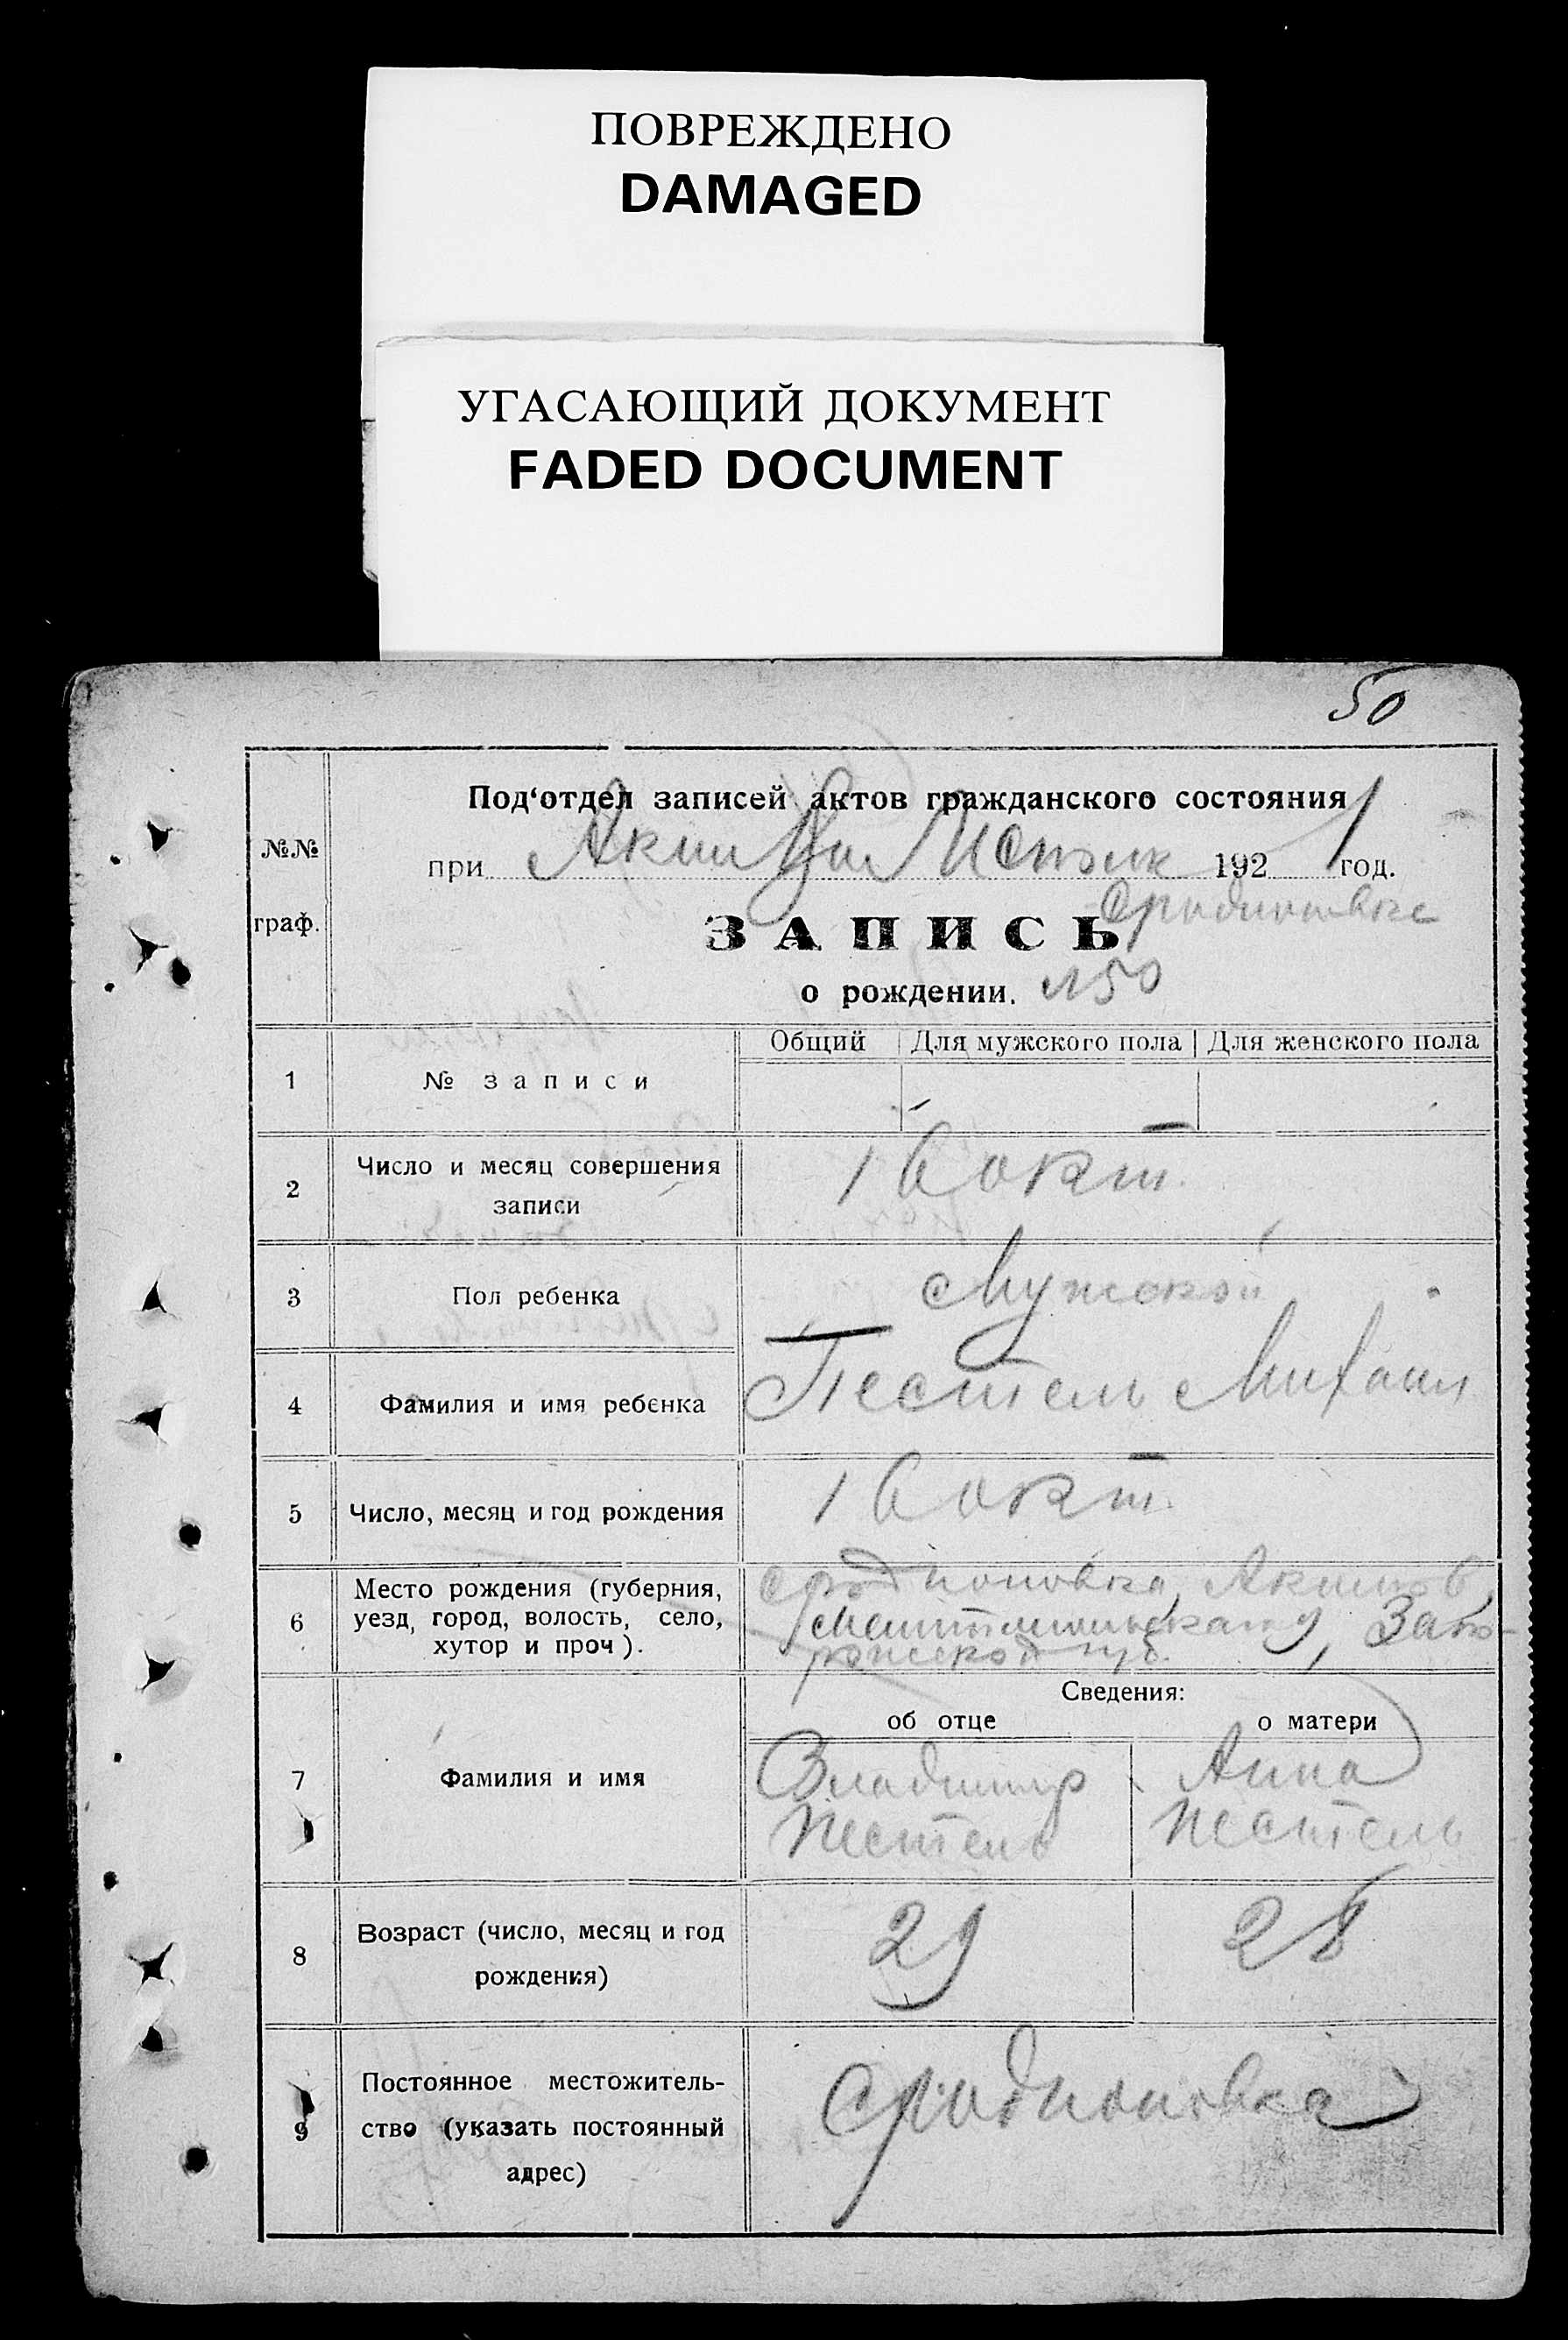 ПОВРЕЖДЕНО
DAMAGED
УГАСАЮЩИЙ ДОКУМЕНТ
FADED DOCUMENT
50
№№ граф.
Под‘отдел записей актов гражданского состояния
при 1921 год.
ЗАПИСЬ
о рождении. №50
Общий Для мужского пола Для женского пола
1 № записи
2 Число и месяц совершения записи 16 окт.
3 Пол ребенка Мужской
4 Фамилия и имя ребенка Пестель Михаил
5 Число, месяц и год рождения 16 окт.
6 Место рождения (губерния,
уезд, город, волость, село,
хутор и проч).
с Родионовка, Акимов
Запо-
рожской губ.
Сведения:
об отце о матери
7 Фамилия и имя
Владимир Анна
Пестель Пестель
8 Возраст (число, месяц и год
рождения)
29 28
9 Постоянное местожитель-
ство (указать постоянный
адрес)
с Родионовка